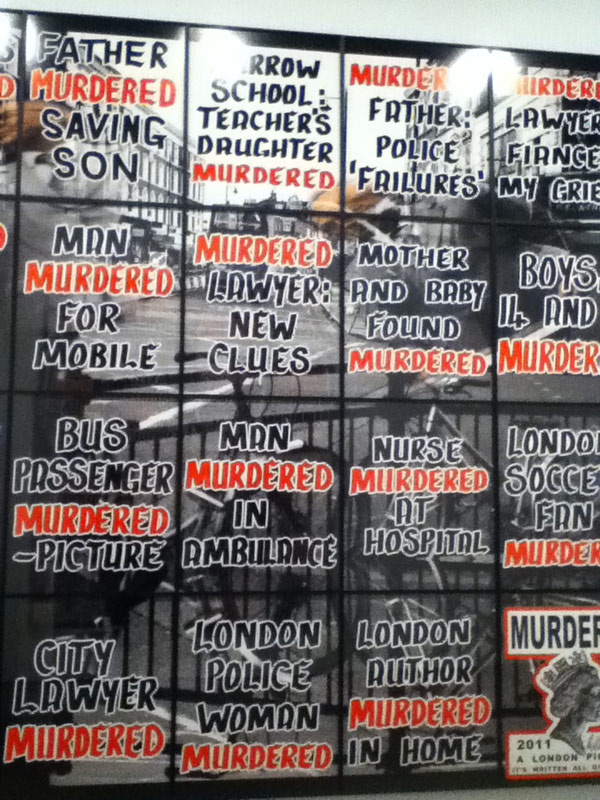 FATHER
MURDERED
SAVING
SON
RROW
SCHOOL:
TEACHER'S
DAUGHTER
MURDERED
MURDER
FATHER:
POLICE
'FAILURES'
LAWYER
FIANCE
MY GRIE
MAN
MURDERED
FOR
MOBILE
MURDERED
LAWYER:
NEW
CLUES
MOTHER
AND BABY
FOUND
MURDERED
BOYS
14 AND
MURDER
BUS
PASSENGER
MURDERED
-PICTURE
MAN
MURDERED
IN
AMBULANCE
NURSE
MURDERED
AT
HOSPITAL
LONDO
SOCCE
FAN
MURDER
CITY
LAWYER
MURDERED
LONDON
POLICE
WOMAN
MURDERED
LONDON
AUTHOR
MURDERED
IN HOME
MURDER
2011
A LONDON PI
IT'S WRITTEN ALL